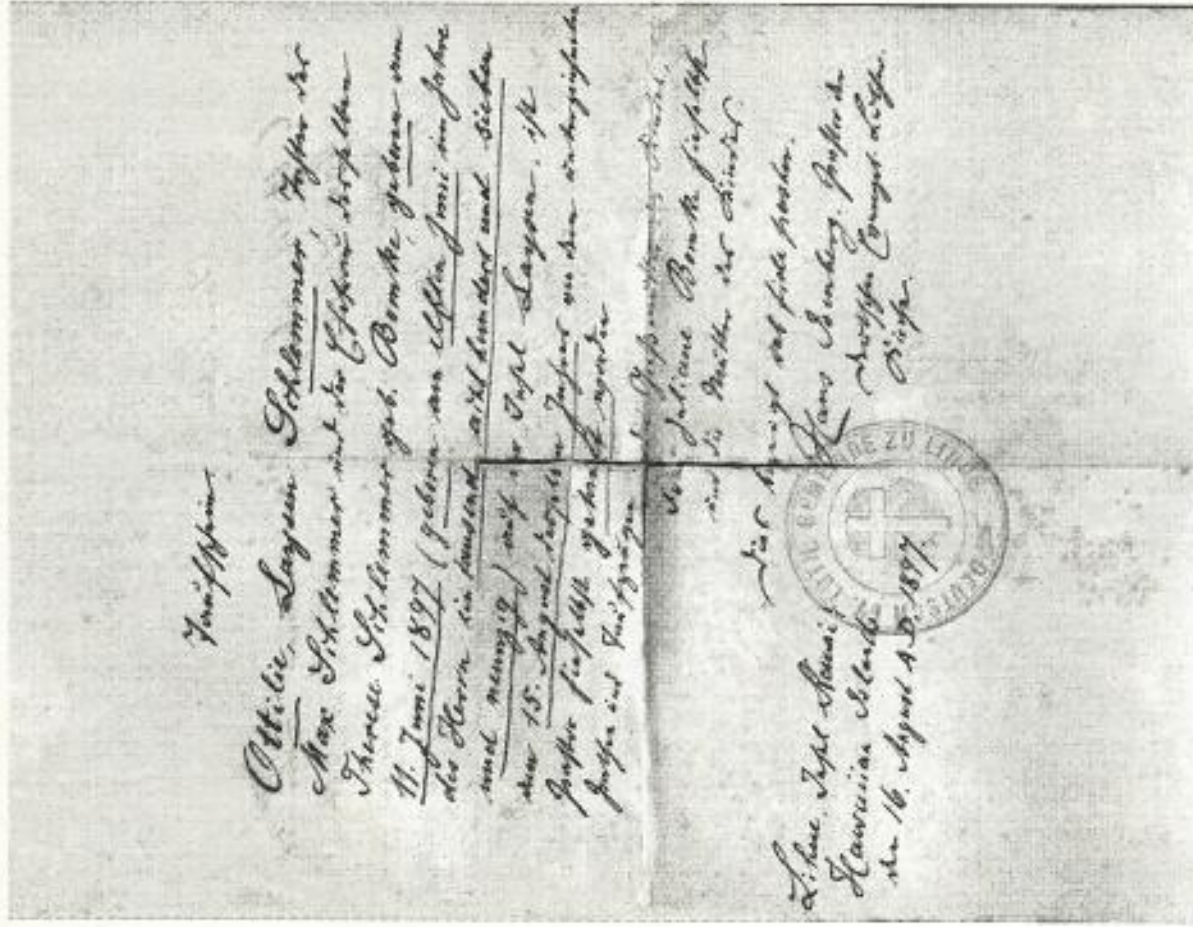 Taufschein
Ottilie, Laysan Schlemmer, Tochter des
Max Schlemmer und der Ehefrau desselben
Therese Schlemmer geb. Bomke, geboren am
11. Juni 1897 (geboren am elften Juni im Jahre
des Herrn ein tausend achthundert und sieben
und neunzig) auf der Insel Laysan, ist
den 15. August desselben Jahres von dem unterzeichneten
Pastor hieselbst getauft worden
Pathen und Taufzeugen
Juliane Bomke hieselbst
und die Mutter des Kindes
Dies bezeugt sub fide pastor.
Hans Isenberg, Pastor der
deutschen Evangel. Luth.
Kirche.
Lihue, Insel Kauai
Hawaiian Islands
den 16. August A.D. 1897.
DEUTSCHE EV. LUTH. GEMEINDE ZU LIHUE